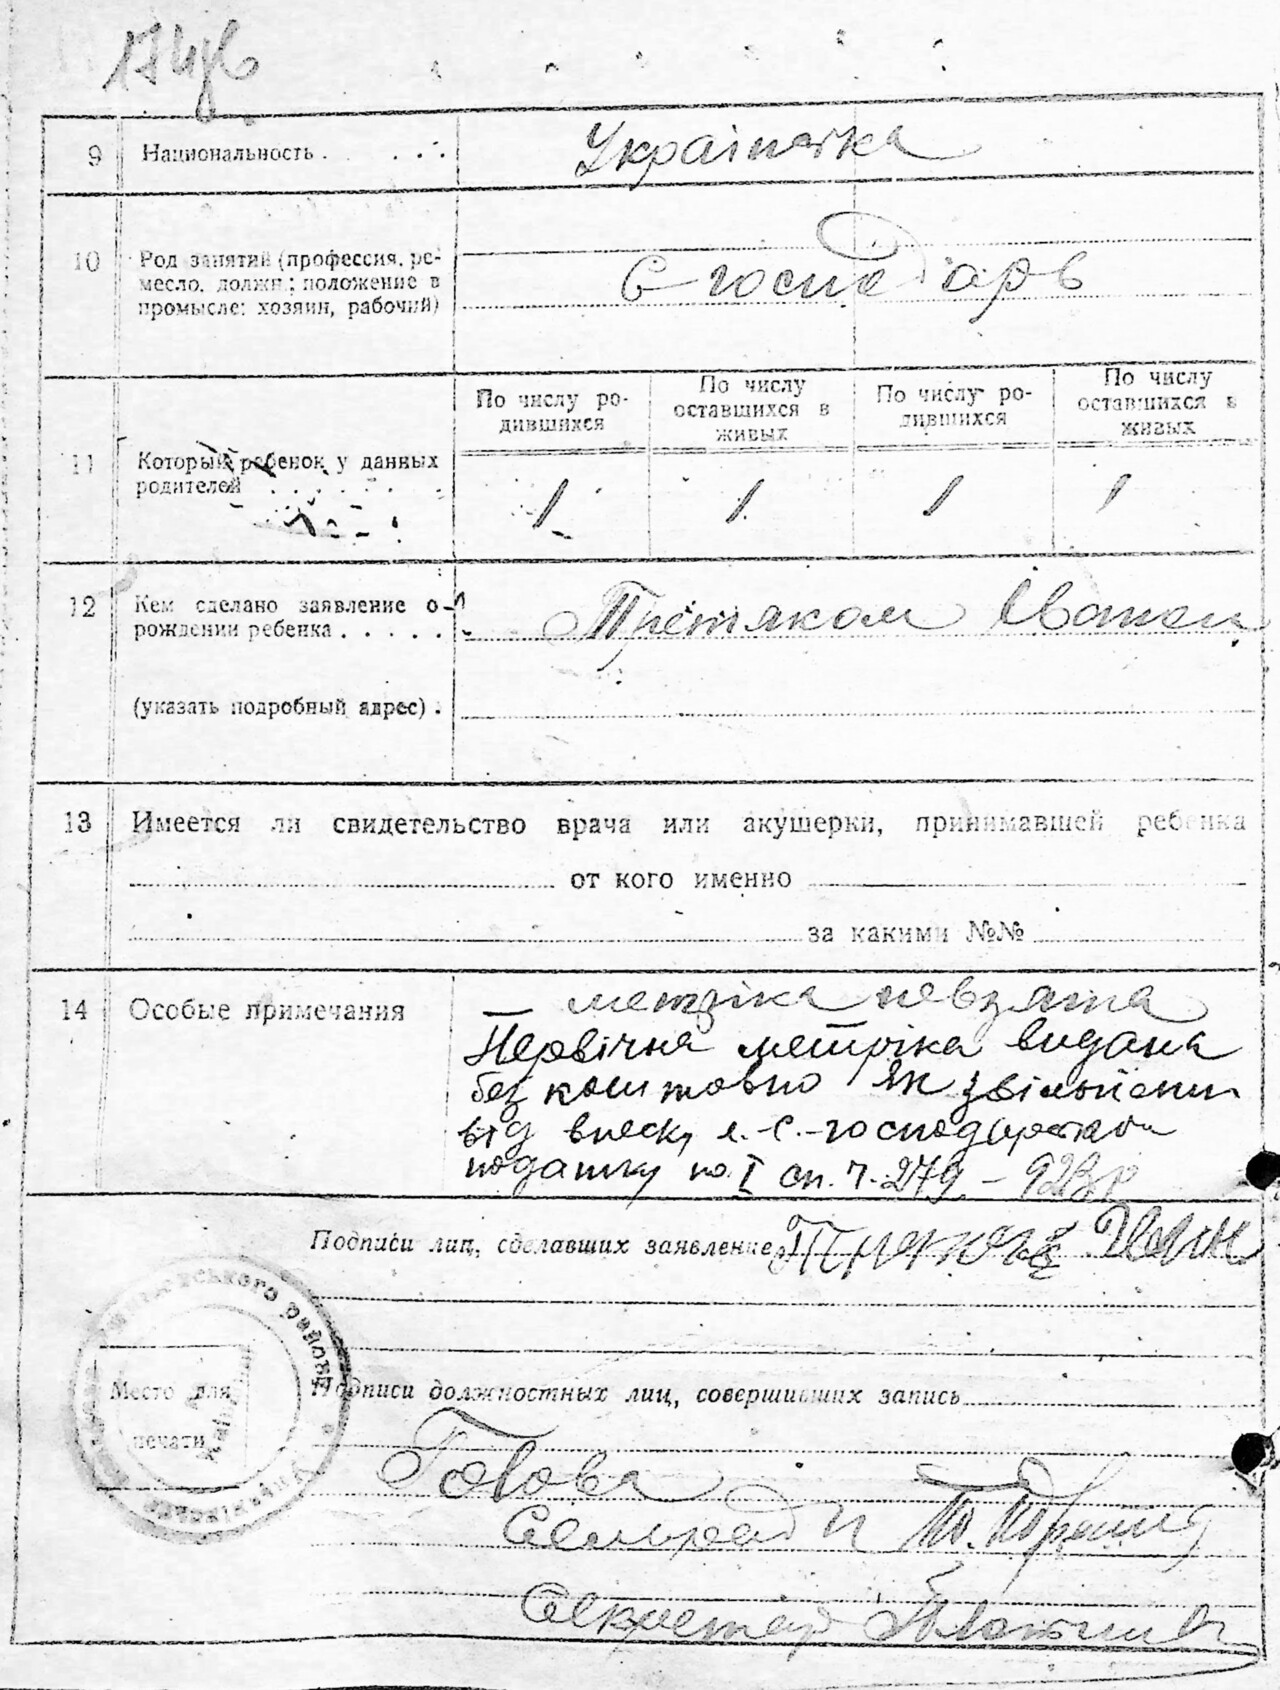 9 Национальность . . . . . Українка
10 Род занятий (профессия, ре-
месло, должн.; положение в
промысле: хозяин, рабочий)
С-господарь
По числу ро-
дившихся
По числу
оставшихся в
живых
По числу ро-
дившихся
По числу
оставшихся в
живых
11 Который ребенок у данных
родителей . . . . . .
1 1 1 1
12 Кем сделано заявление о
рождении ребенка . . . . .
Третяком Іваном
(указать подробный адрес) .
13 Имеется ли свидетельство врача или акушерки, принимавшей ребенка
от кого именно
за какими №№
14 Особые примечания
метріка невзята
Первічна метріка видана
безкоштовно як звільнени
від внеску с.-господарського
податку по I сп. ч. 279 – 923р
Подписи лиц, сделавших заявление Іван
ського району
Место для
печати
Подписи должностных лиц, совершивших запись
Голова
Сельради
Секретар